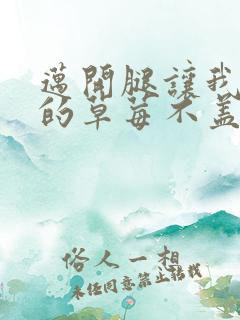 邁開腿讓我
的草莓不蓋
俗人一相
未任同意禁止转载